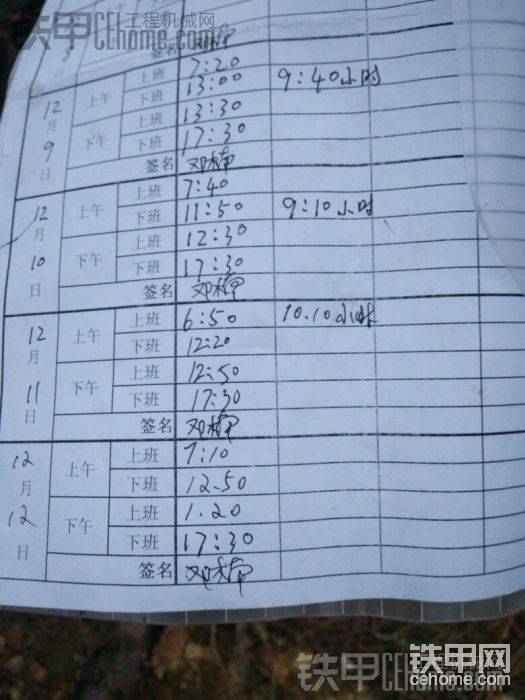 铁甲 工程机械网 CEhome.com
签名
12月9日 上午 上班 7:20
下班 13:00 9:40小时
下午 上班 13:30
下班 17:30
签名
12月10日 上午 上班 7:40
下班 11:50 9:10小时
下午 上班 12:30
下班 17:30
签名
12月11日 上午 上班 6:50 10.10小时
下班 12:20
下午 上班 12:50
下班 17:30
签名
12月12日 上午 上班 7:10
下班 12.50
下午 上班 1.20
下班 17:30
签名
铁甲网
cehome.com